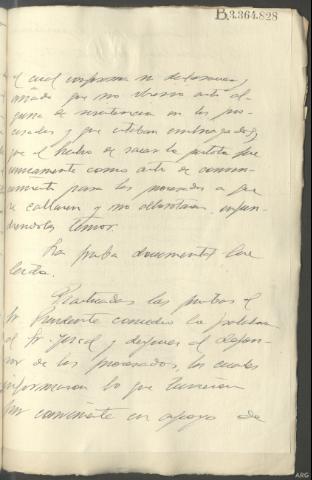 B.3.364.828
el cual confirma su declaracion,
añade que no observo acto al-
guno de resistencia en los pro-
cesados y que estaban embriagados,
que el hecho de sacar la pistola fue
unicamente como acto de
para los procesados a que
se callaran y no alborotaran, infun-
diendoles temor.
La prueba documental fue
leida.
Practicadas las pruebas el
Sr Presidente concedio la palabra
al Sr. Fiscal y despues al defen-
sor de los procesados, los cuales
informaron lo que tuvieron
por conveniente en apoyo de
ARG